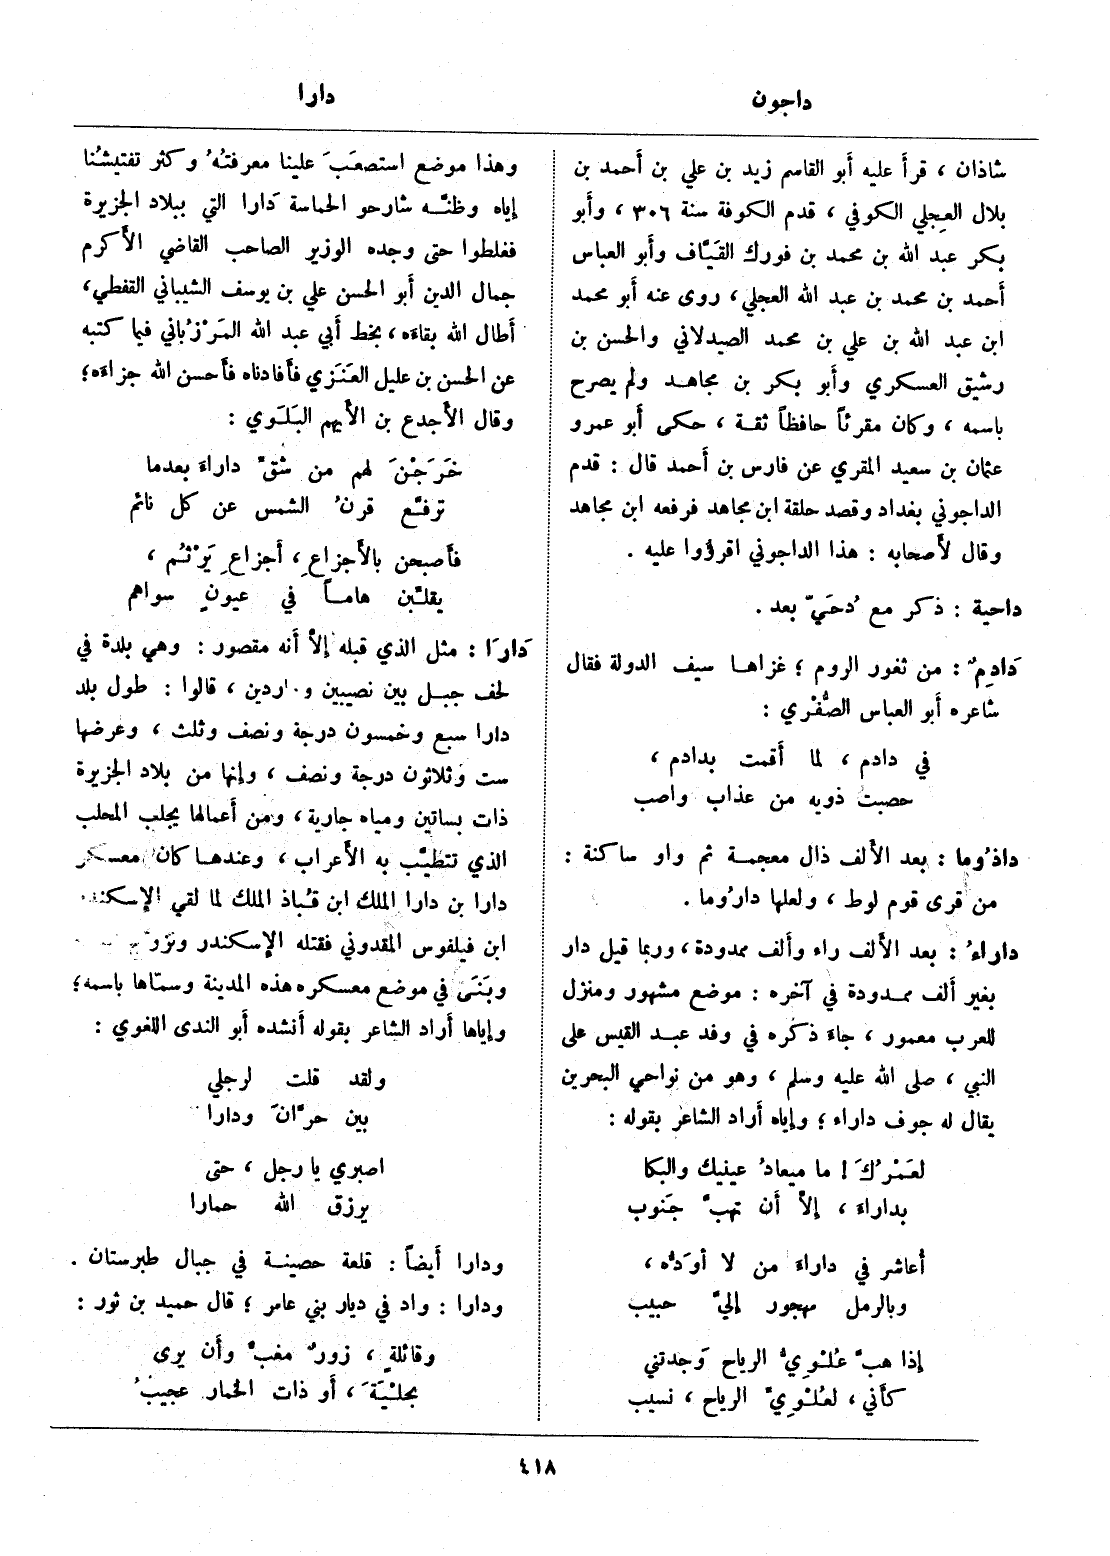 داجون
دارا
شاذان ، قرأ عليه أبو القاسم زيد بن علي بن أحمد بن
بلال العجلي الكوفي ، قدم الكوفة سنة ٣٠٦ ، وأبو
بكر عبد الله بن محمد بن فورك القَيَّاف وأبو العباس
أحمد بن محمد بن عبد الله العجلي ، روى عنه أبو محمد
ابن عبد الله بن علي بن محمد الصيدلاني والحسن بن
رشيق العسكري وأبو بكر بن مجاهد ولم يصرح
باسمه ، وكان مقرئاً حافظاً ثقة ، حكى أبو عمرو
عثمان بن سعيد المقري عن فارس بن أحمد قال : قدم
الداجوني بغداد وقصد حلقة ابن مجاهد فرفعه ابن مجاهد
وقال لأصحابه : هذا الداجوني اقرؤوا عليه .
داحية : ذكر مع دُحَيّ بعد .
دَادِمٌ : من ثغور الروم ؛ غزاها سيف الدولة فقال
شاعره أبو العباس الصُّفْري :
في دادم ، لما أقمت بدادم ،
حصبت ذويه من عذاب واصب
داذُوما : بعد الألف ذال معجمة ثم واو ساكنة :
من قرى قوم لوط ، ولعلها دارُوما .
داراءُ : بعد الألف راء وألف ممدودة ، وربما قيل دار
بغير ألف ممدودة في آخره : موضع مشهور ومنزل
للعرب معمور ، جاء ذكره في وفد عبد القيس على
النبي ، صلى الله عليه وسلم ، وهو من نواحي البحرين
يقال له جوف داراء ؛ وإياه أراد الشاعر بقوله :
لعَمْرُكَ ! ما ميعادُ عينيك والبكا
بداراءَ ، إلاّ أن تهبّ جَنوب
أُعاشر في داراءَ من لا أودُّه ،
وبالرمل مهجور إليّ حبيب
إذا هبّ عُلْوِيُّ الرياح وَجدتني
كأني ، لعُلْوِيّ الرياح ، نسيب
وهذا موضع استصعَبَ علينا معرفتُهُ وكثر تفتيشُنا
إياه وظنّه شارحو الحماسة دَارا التي ببلاد الجزيرة
فغلطوا حتى وجده الوزير الصاحب القاضي الأكرم
جمال الدين أبو الحسن علي بن يوسف الشيباني القفطي،
أطال الله بقاءه ، بخط أبي عبد الله المَرْزُباني فيما كتبه
عن الحسن بن عليل العَنَزي فأفادناه فأحسن الله جزاءه؛
وقال الأجدع بن الأيهم البَلَوي :
خَرَجْنَ لهم من شقّ داراءَ بعدما
ترفّع قرنُ الشمس عن كل نائم
فأصبحن بالأجزاعِ ، أجزاعِ يَرْثُم ،
يقلّبن هاماً في عيونٍ سواهم
دَارَا : مثل الذي قبله إلاّ أنه مقصور : وهي بلدة في
لحف جبل بين نصيبين وماردين ، قالوا : طول بلد
دارا سبع وخمسون درجة ونصف وثلث ، وعرضها
ست وثلاثون درجة ونصف ، وإنها من بلاد الجزيرة
ذات بساتين ومياه جارية ، ومن أعمالها يجلب المحلب
الذي تتطيّب به الأعراب ، وعندها كان معسكر
دارا بن دارا الملك ابن قُباذ الملك لما لقي الإسكندر
ابن فيلفوس المقدوني فقتله الإسكندر وتزوج
وبَنَى في موضع معسكره هذه المدينة وسمّاها باسمه؛
وإياها أراد الشاعر بقوله أنشده أبو الندى اللغوي :
ولقد قلت لرجلي
بين حرّانَ ودارا
اصبري يا رجل ، حتى
يرزق الله حمارا
ودارا أيضاً : قلعة حصينة في جبال طبرستان .
ودارا : واد في ديار بني عامر ؛ قال حميد بن ثور :
وقائلةٍ ، زورٌ مغبّ وأن يرى
بحلْيَةَ ، أو ذات الخمار عجيبُ
٤١٨